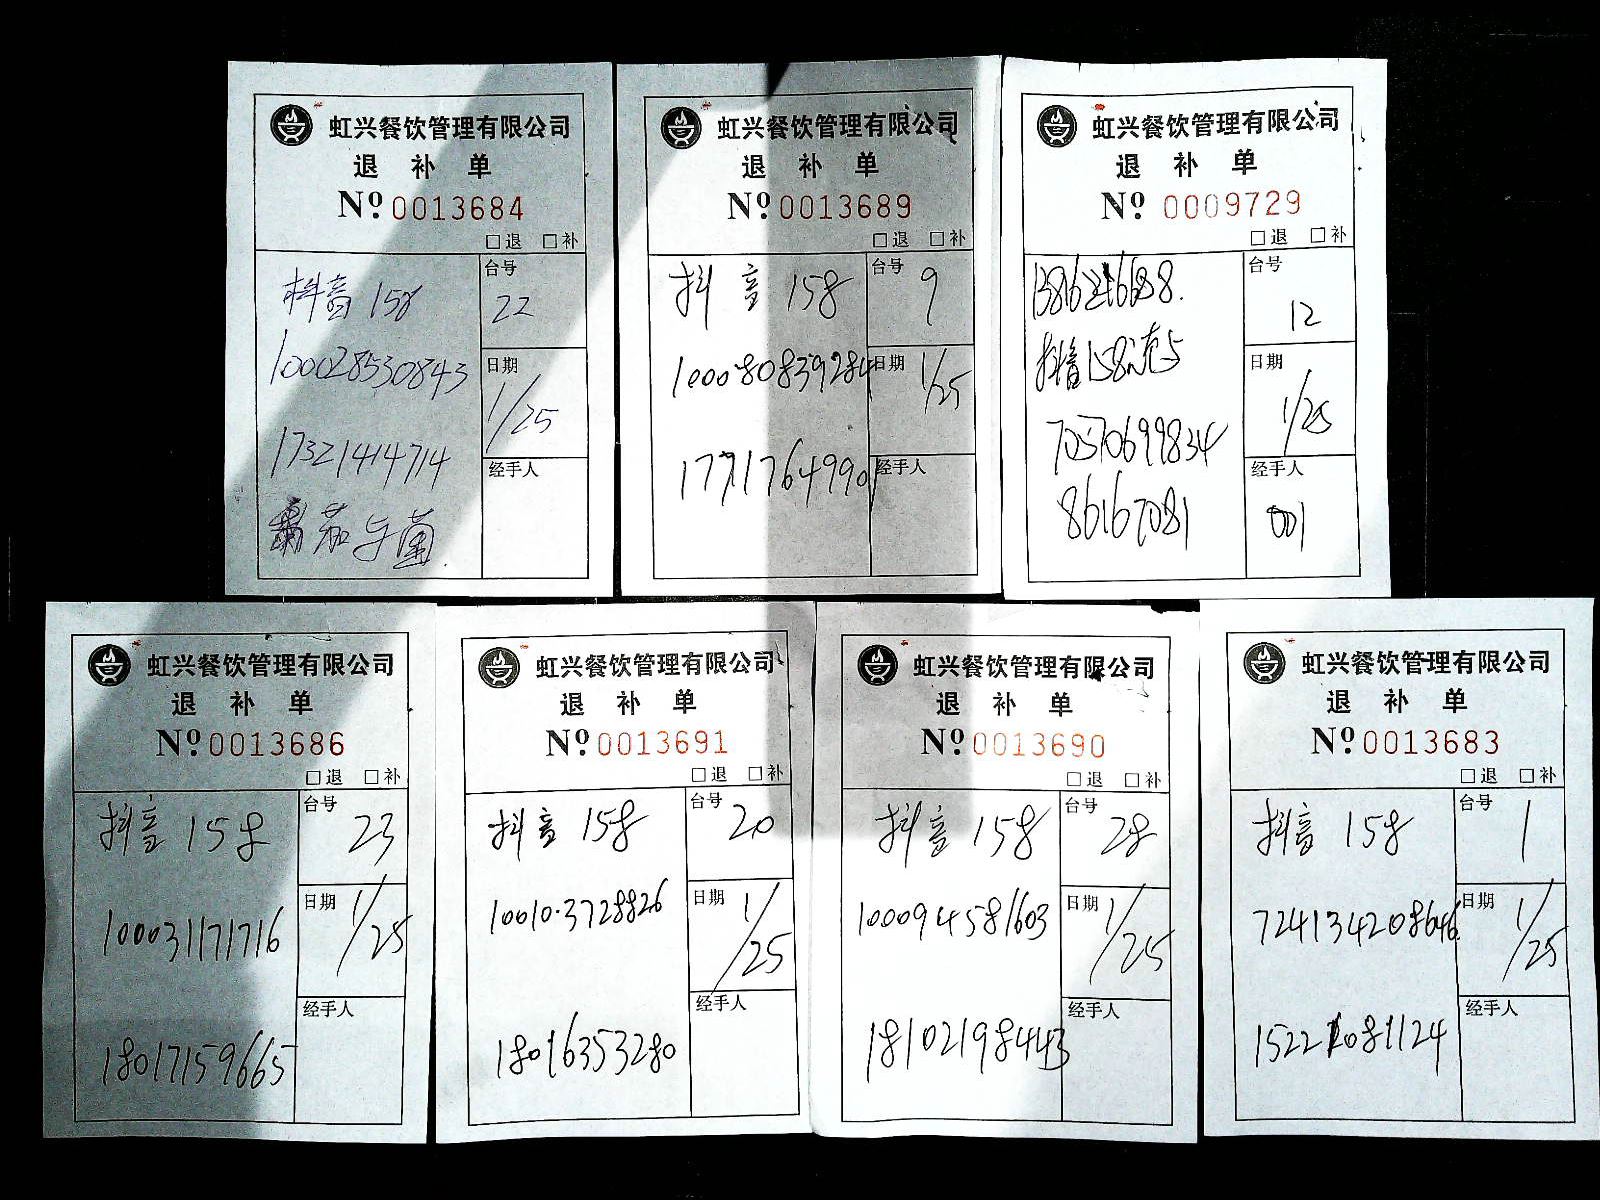 虹兴餐饮管理有限公司
退 补 单
Nº 0013684
□退 □补
抖音 158
台号
22
1000285530843
日期
1/25
17321414714
经手人
茄子菌
虹兴餐饮管理有限公司
退 补 单
Nº 0013689
□退 □补
抖音 158
台号
9
100080839284
日期
1/25
17717649901
经手人
虹兴餐饮管理有限公司
退 补 单
Nº 0009729
□退 □补
台号
12
抖音158
日期
1/25
70570699834
经手人
86167081
001
虹兴餐饮管理有限公司
退 补 单
Nº 0013686
□退 □补
抖音 158
台号
23
100031171716
日期
1/25
18017159665
经手人
虹兴餐饮管理有限公司
退 补 单
Nº 0013691
□退 □补
抖音 158
台号
20
10010.3728826
日期
1/25
18016353280
经手人
虹兴餐饮管理有限公司
退 补 单
Nº 0013690
□退 □补
抖音 158
台号
28
100094581603
日期
1/25
18102198443
经手人
虹兴餐饮管理有限公司
退 补 单
Nº 0013683
□退 □补
抖音 158
台号
1
724134208646
日期
1/25
15221081124
经手人